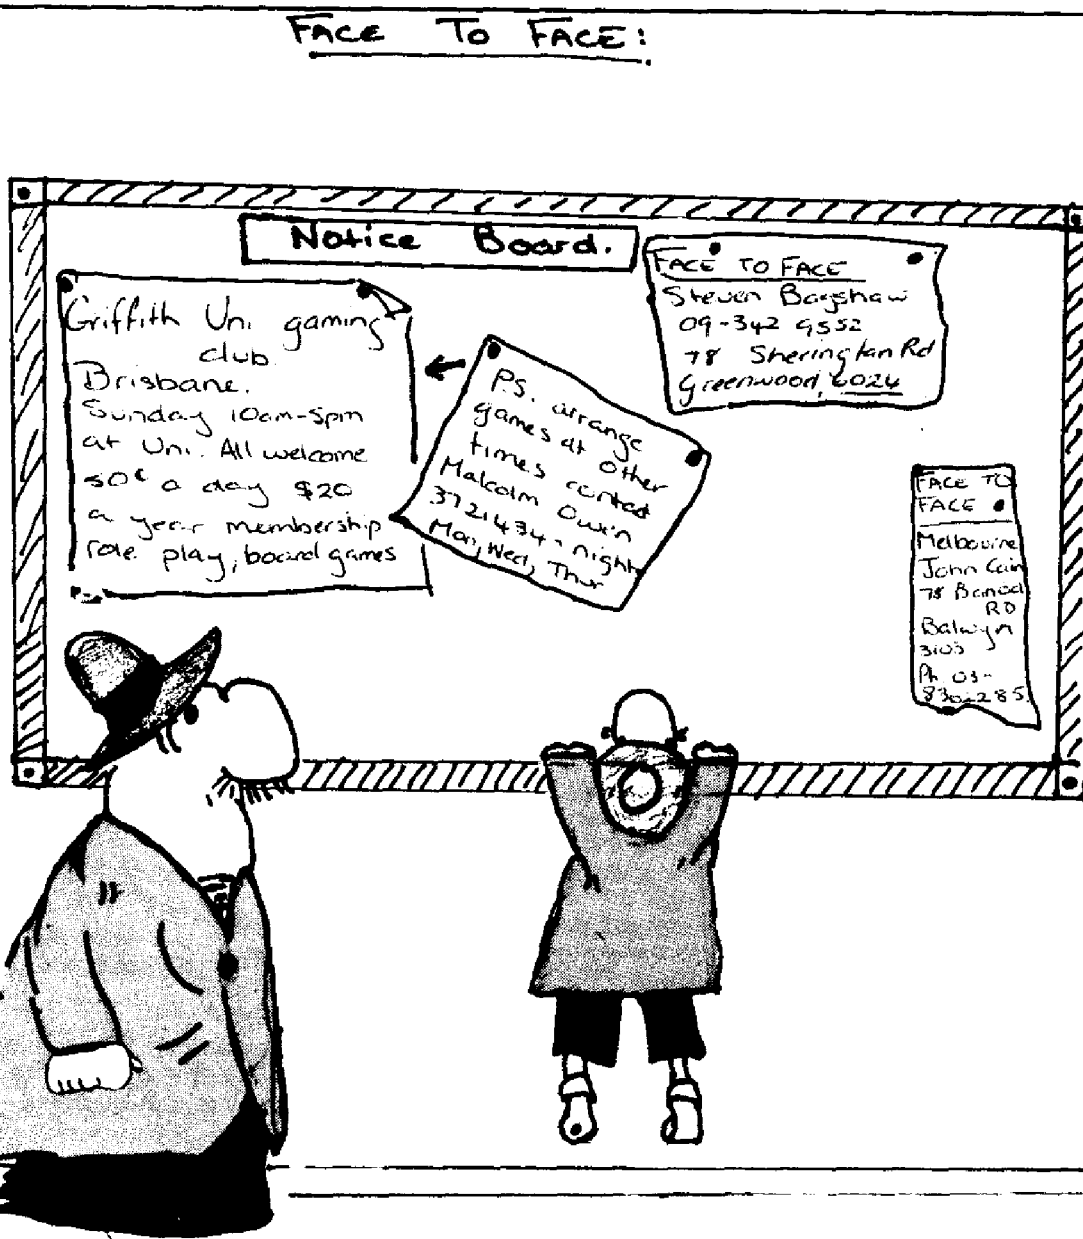 FACE TO FACE:
Notice Board.
Griffith Uni gaming
club.
Brisbane.
Sunday 10am-5pm
at Uni. All welcome
50¢ a day $20
a year membership
role play, board games
PS. arrange
games at other
times contact
Malcolm Owin
3721434. night
Mon, Wed, Thur
FACE TO FACE
Steven Bagshaw
09-342 9552
78 Sherington Rd
Greenwood, 6024
FACE TO
FACE
Melbourne
John Cain
78
RD
Balwyn
3103
Ph. 03-
8302285